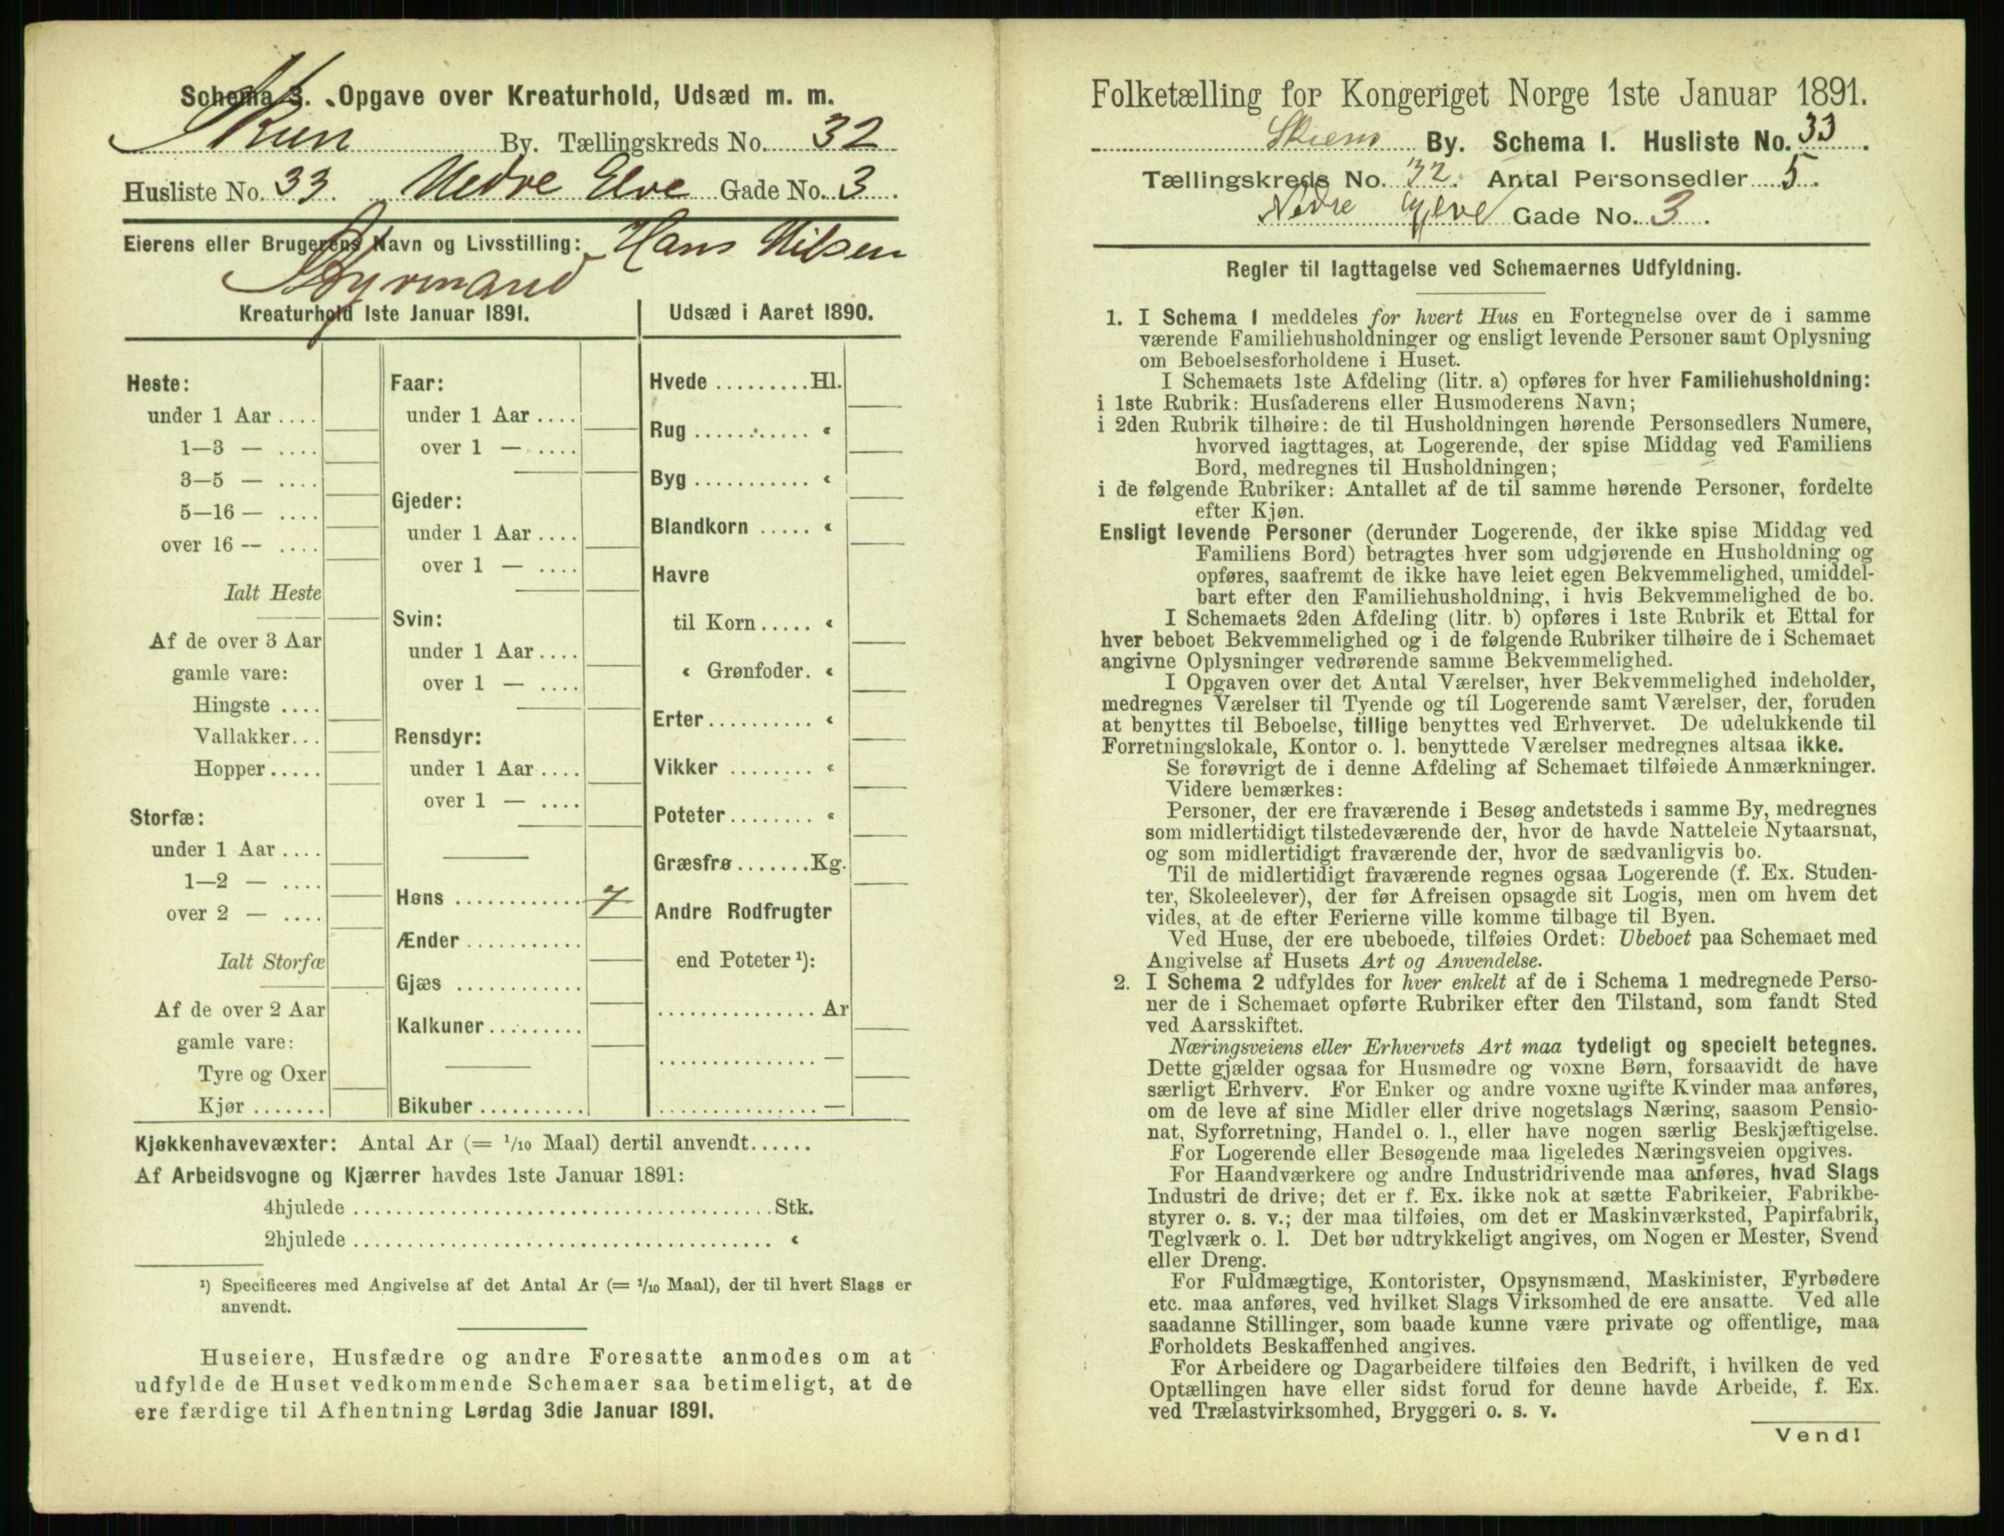 Schema 3. Opgave over Kreaturhold, Udsæd m. m.
Skien By. Tællingskreds No. 32
Husliste No. 33 Nedre Elve Gade No. 3
Eierens eller Brugerens Navn og Livsstilling: Hans Nilsen
Styrmand
Kreaturhold 1ste Januar 1891.
Heste:
under 1 Aar ....
1—3 — ....
3—5 — ....
5—16 — ....
over 16 — ....
Ialt Heste
Af de over 3 Aar
gamle vare:
Hingste ....
Vallakker...
Hopper.....
Storfæ:
under 1 Aar ....
1—2 — ....
over 2 — ....
Ialt Storfæ
Af de over 2 Aar
gamle vare:
Tyre og Oxer
Kjør .......
Faar:
under 1 Aar ....
over 1 — ....
Gjeder:
under 1 Aar ....
over 1 — ....
Svin:
under 1 Aar ....
over 1 — ....
Rensdyr:
under 1 Aar ....
over 1 — ....
Høns ............ 7
Ænder ...........
Gjæs ............
Kalkuner.........
Bikuber ..........
Udsæd i Aaret 1890.
Hvede .........Hl.
Rug .......... «
Byg ........... «
Blandkorn ..... «
Havre
til Korn..... «
« Grønfoder. «
Erter.......... «
Vikker ........ «
Poteter........ «
Græsfrø .......Kg.
Andre Rodfrugter
end Poteter ¹):
............... Ar
............... —
............... —
Kjøkkenhavevæxter: Antal Ar (= 1/10 Maal) dertil anvendt......
Af Arbeidsvogne og Kjærrer havdes 1ste Januar 1891:
4hjulede .......................................Stk.
2hjulede ....................................... «
¹) Specificeres med Angivelse af det Antal Ar (= 1/10 Maal), der til hvert Slags er
anvendt.
Huseiere, Husfædre og andre Foresatte anmodes om at
udfylde de Huset vedkommende Schemaer saa betimeligt, at de
ere færdige til Afhentning Lørdag 3die Januar 1891.
Folketælling for Kongeriget Norge 1ste Januar 1891.
Skiens By. Schema 1. Husliste No. 33.
Tællingskreds No. 32. Antal Personsedler 5.
Nedre Elve Gade No. 3.
Regler til Iagttagelse ved Schemaernes Udfyldning.
1. I Schema 1 meddeles for hvert Hus en Fortegnelse over de i samme
værende Familiehusholdninger og ensligt levende Personer samt Oplysning
om Beboelsesforholdene i Huset.
I Schemaets 1ste Afdeling (litr. a) opføres for hver Familiehusholdning:
i 1ste Rubrik: Husfaderens eller Husmoderens Navn;
i 2den Rubrik tilhøire: de til Husholdningen hørende Personsedlers Numere,
hvorved iagttages, at Logerende, der spise Middag ved Familiens
Bord, medregnes til Husholdningen;
i de følgende Rubriker: Antallet af de til samme hørende Personer, fordelte
efter Kjøn.
Ensligt levende Personer (derunder Logerende, der ikke spise Middag ved
Familiens Bord) betragtes hver som udgjørende en Husholdning og
opføres, saafremt de ikke have leiet egen Bekvemmelighed, umiddel-
bart efter den Familiehusholdning, i hvis Bekvemmelighed de bo.
I Schemaets 2den Afdeling (litr. b) opføres i 1ste Rubrik et Ettal for
hver beboet Bekvemmelighed og i de følgende Rubriker tilhøire de i Schemaet
angivne Oplysninger vedrørende samme Bekvemmelighed.
I Opgaven over det Antal Værelser, hver Bekvemmelighed indeholder,
medregnes Værelser til Tyende og til Logerende samt Værelser, der, foruden
at benyttes til Beboelse, tillige benyttes ved Erhvervet. De udelukkende til
Forretningslokale, Kontor o. l. benyttede Værelser medregnes altsaa ikke.
Se forøvrigt de i denne Afdeling af Schemaet tilføiede Anmærkninger.
Videre bemærkes:
Personer, der ere fraværende i Besøg andetsteds i samme By, medregnes
som midlertidigt tilstedeværende der, hvor de havde Natteleie Nytaarsnat,
og som midlertidigt fraværende der, hvor de sædvanligvis bo.
Til de midlertidigt fraværende regnes ogsaa Logerende (f. Ex. Studen-
ter, Skoleelever), der før Afreisen opsagde sit Logis, men om hvem det
vides, at de efter Ferierne ville komme tilbage til Byen.
Ved Huse, der ere ubeboede, tilføies Ordet: Ubeboet paa Schemaet med
Angivelse af Husets Art og Anvendelse.
2. I Schema 2 udfyldes for hver enkelt af de i Schema 1 medregnede Perso-
ner de i Schemaet opførte Rubriker efter den Tilstand, som fandt Sted
ved Aarsskiftet.
Næringsveiens eller Erhvervets Art maa tydeligt og specielt betegnes.
Dette gjælder ogsaa for Husmødre og voxne Børn, forsaavidt de have
særligt Erhverv. For Enker og andre voxne ugifte Kvinder maa anføres,
om de leve af sine Midler eller drive nogetslags Næring, saasom Pensio-
nat, Syforretning, Handel o. l., eller have nogen særlig Beskjæftigelse.
For Logerende eller Besøgende maa ligeledes Næringsveien opgives.
For Haandværkere og andre Industridrivende maa anføres, hvad Slags
Industri de drive; det er f. Ex. ikke nok at sætte Fabrikeier, Fabrikbe-
styrer o. s. v.; der maa tilføies, om det er Maskinværksted, Papirfabrik,
Teglværk o. l. Det bør udtrykkeligt angives, om Nogen er Mester, Svend
eller Dreng.
For Fuldmægtige, Kontorister, Opsynsmænd, Maskinister, Fyrbødere
etc. maa anføres, ved hvilket Slags Virksomhed de ere ansatte. Ved alle
saadanne Stillinger, som baade kunne være private og offentlige, maa
Forholdets Beskaffenhed angives.
For Arbeidere og Dagarbeidere tilføies den Bedrift, i hvilken de ved
Optællingen have eller sidst forud for denne havde Arbeide, f. Ex.
ved Trælastvirksomhed, Bryggeri o. s. v.
Vend!